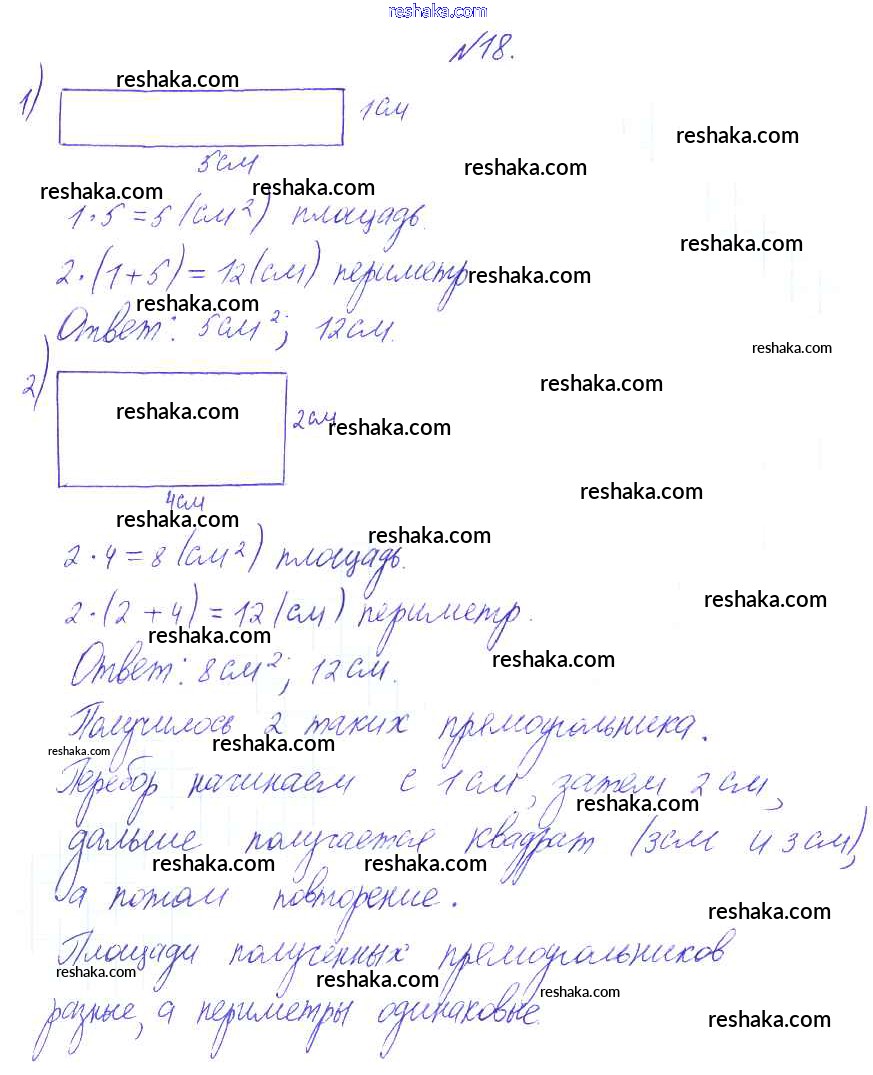 reshaka.com
№18.
reshaka.com
1) 1см
reshaka.com
5см
reshaka.com
reshaka.com reshaka.com
1·5=5(см²) площадь.
reshaka.com
2·(1+5)=12(см) периметр reshaka.com
reshaka.com
Ответ: 5см²; 12см.
reshaka.com
2)
reshaka.com
reshaka.com 2см reshaka.com
reshaka.com
4см
reshaka.com
reshaka.com
2·4=8(см²) площадь.
reshaka.com
2·(2+4)=12(см) периметр.
reshaka.com
reshaka.com
Ответ: 8см²; 12см.
Получилось 2 таких прямоугольника.
reshaka.com reshaka.com
Перебор начинаем с 1см, затем 2см,
reshaka.com
дальше получается квадрат (3см и 3см),
reshaka.com reshaka.com
а потом повторение.
reshaka.com
Площади полученных прямоугольников
reshaka.com reshaka.com
reshaka.com
разные, а периметры одинаковые.
reshaka.com